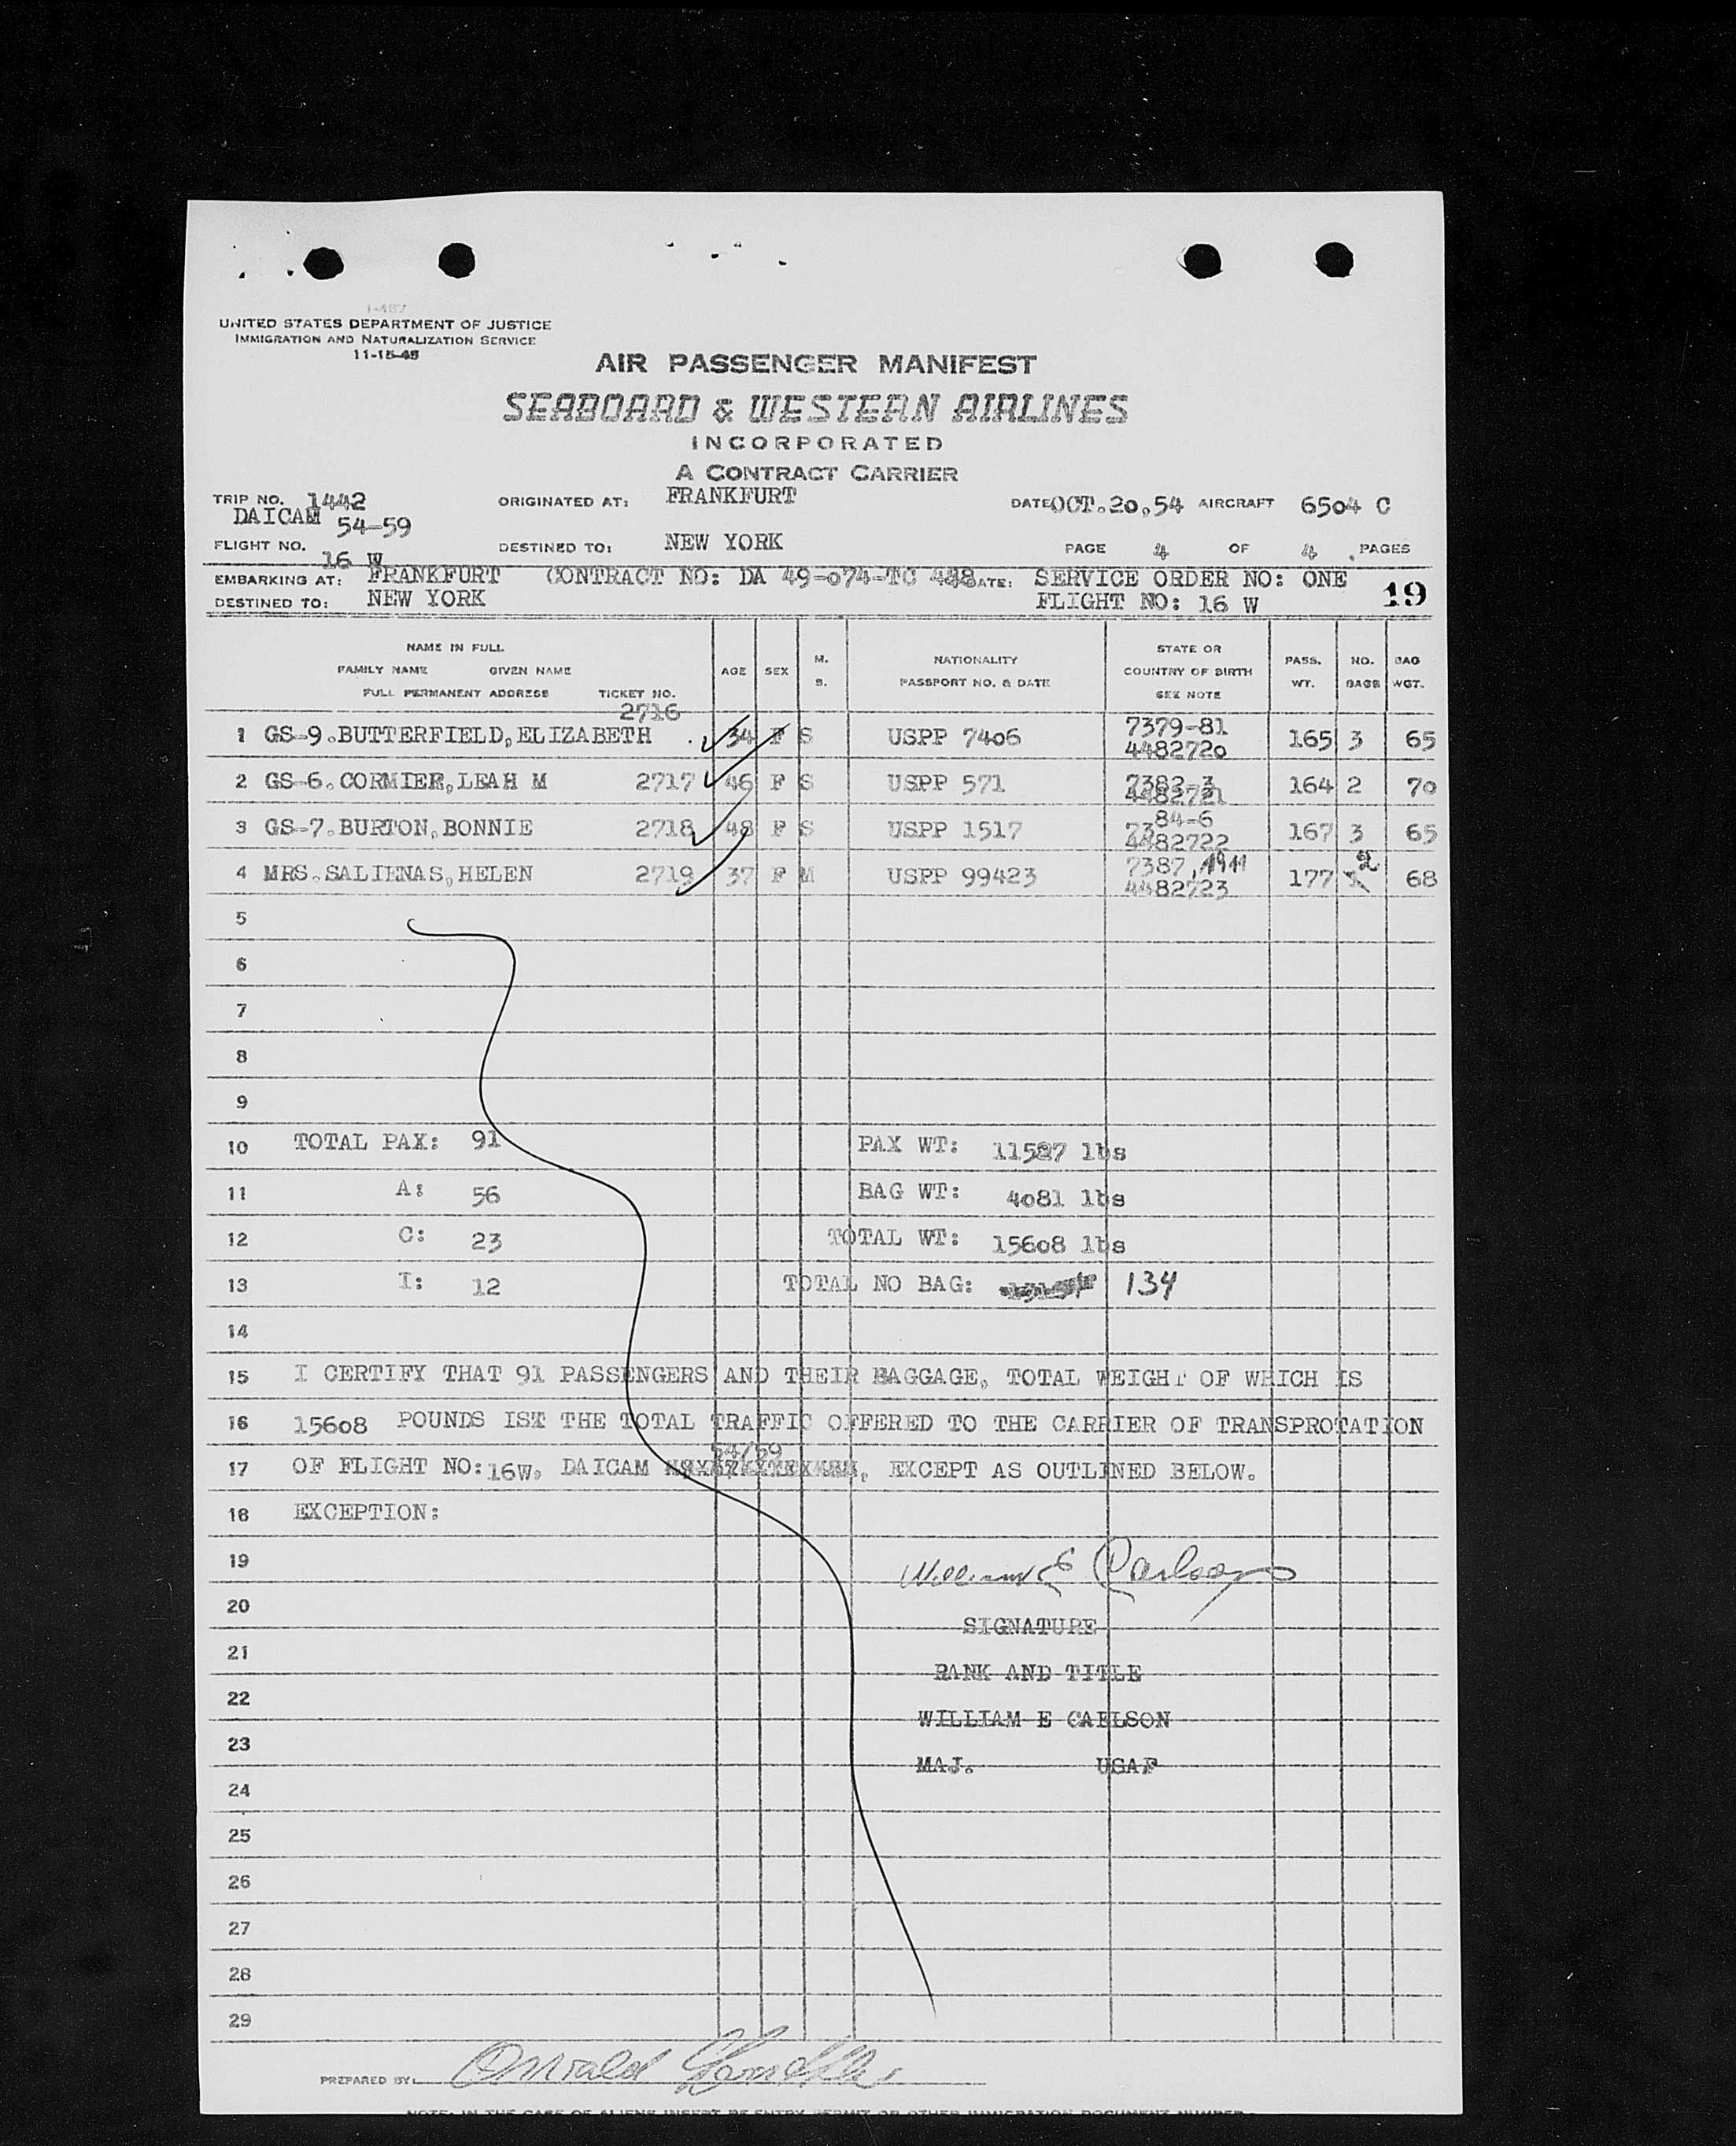 I-487
UNITED STATES DEPARTMENT OF JUSTICE
IMMIGRATION AND NATURALIZATION SERVICE
11-15-48
AIR PASSENGER MANIFEST
SEABOARD & WESTERN AIRLINES
INCORPORATED
A CONTRACT CARRIER
TRIP NO. 1442 ORIGINATED AT: FRANKFURT DATE OCT.20,54 AIRCRAFT 6504 C
DAICAM 54-59
FLIGHT NO. 16 W DESTINED TO: NEW YORK PAGE 4 OF 4 PAGES
EMBARKING AT: FRANKFURT CONTRACT NO: DA 49-074-TC 448 DATE: SERVICE ORDER NO: ONE
DESTINED TO: NEW YORK FLIGHT NO: 16 W 19
NAME IN FULL
FAMILY NAME GIVEN NAME
FULL PERMANENT ADDRESS TICKET NO. AGE SEX M. S. NATIONALITY PASSPORT NO. & DATE STATE OR COUNTRY OF BIRTH SEE NOTE PASS. WT. NO. BAGS BAG WGT.
2716
1 GS-9.BUTTERFIELD,ELIZABETH 34 F S USPP 7406 7379-81 4482720 165 3 65
2 GS-6.CORMIER,LEAH M 2717 46 F S USPP 571 7382-3 4482721 164 2 70
3 GS-7.BURTON,BONNIE 2718 48 F S USPP 1517 7384-6 4482722 167 3 65
4 MRS.SALIENAS,HELEN 2719 37 F M USPP 99423 7387, 4482723 177 2 68
5
6
7
8
9
10 TOTAL PAX: 91 PAX WT: 11527 lbs
11 A: 56 BAG WT: 4081 lbs
12 C: 23 TOTAL WT: 15608 lbs
13 I: 12 TOTAL NO BAG: 134
14
15 I CERTIFY THAT 91 PASSENGERS AND THEIR BAGGAGE, TOTAL WEIGHT OF WHICH IS
16 15608 POUNDS IST THE TOTAL TRAFFIC OFFERED TO THE CARRIER OF TRANSPROTATION
54/59
17 OF FLIGHT NO:16W, DAICAM , EXCEPT AS OUTLINED BELOW.
18 EXCEPTION:
19 William E Carlson
20
SIGNATURE
21
RANK AND TITLE
22
WILLIAM E CARLSON
23
MAJ. USAF
24
25
26
27
28
29
PREPARED BY: Oswald
NOTE: IN THE CASE OF ALIENS INSERT RE-ENTRY PERMIT OR OTHER IMMIGRATION DOCUMENT NUMBER